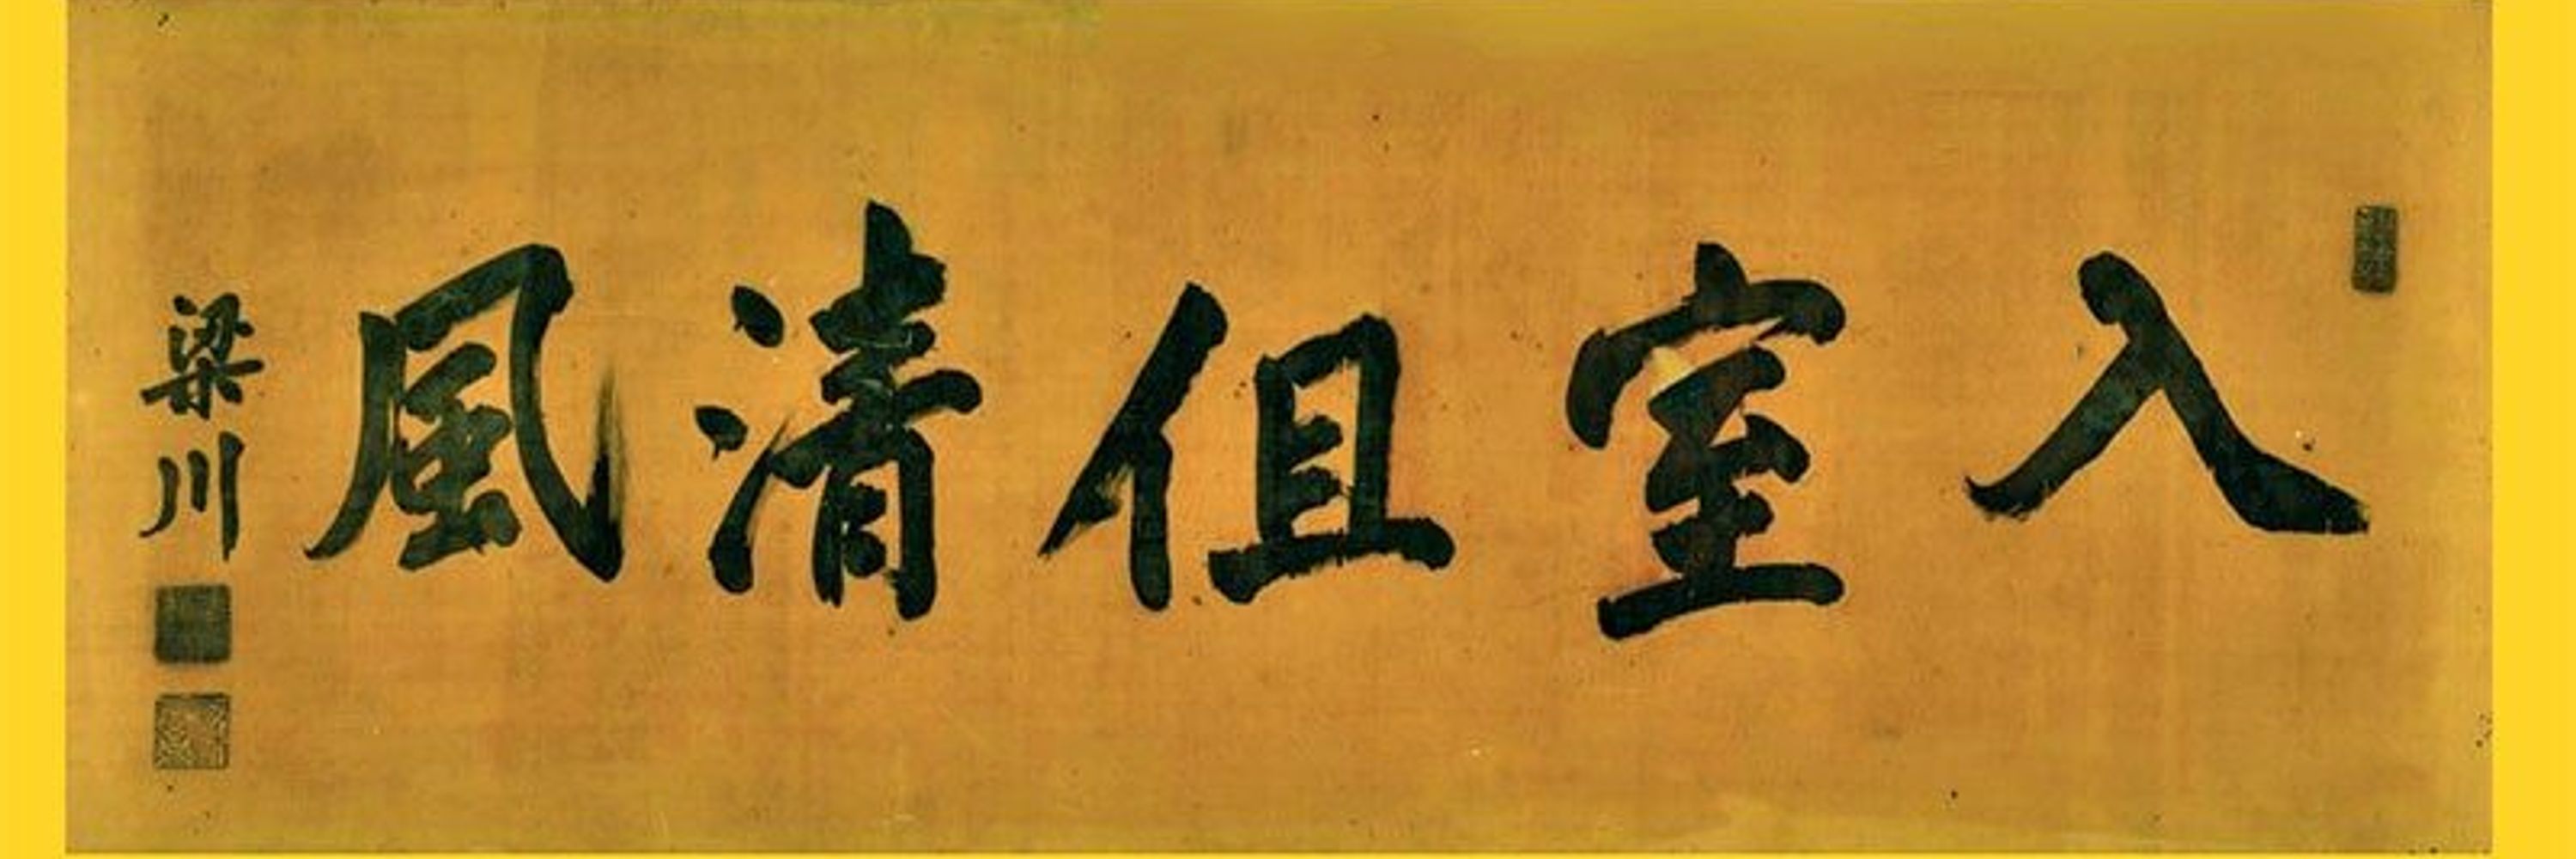 入室但清風
梁川